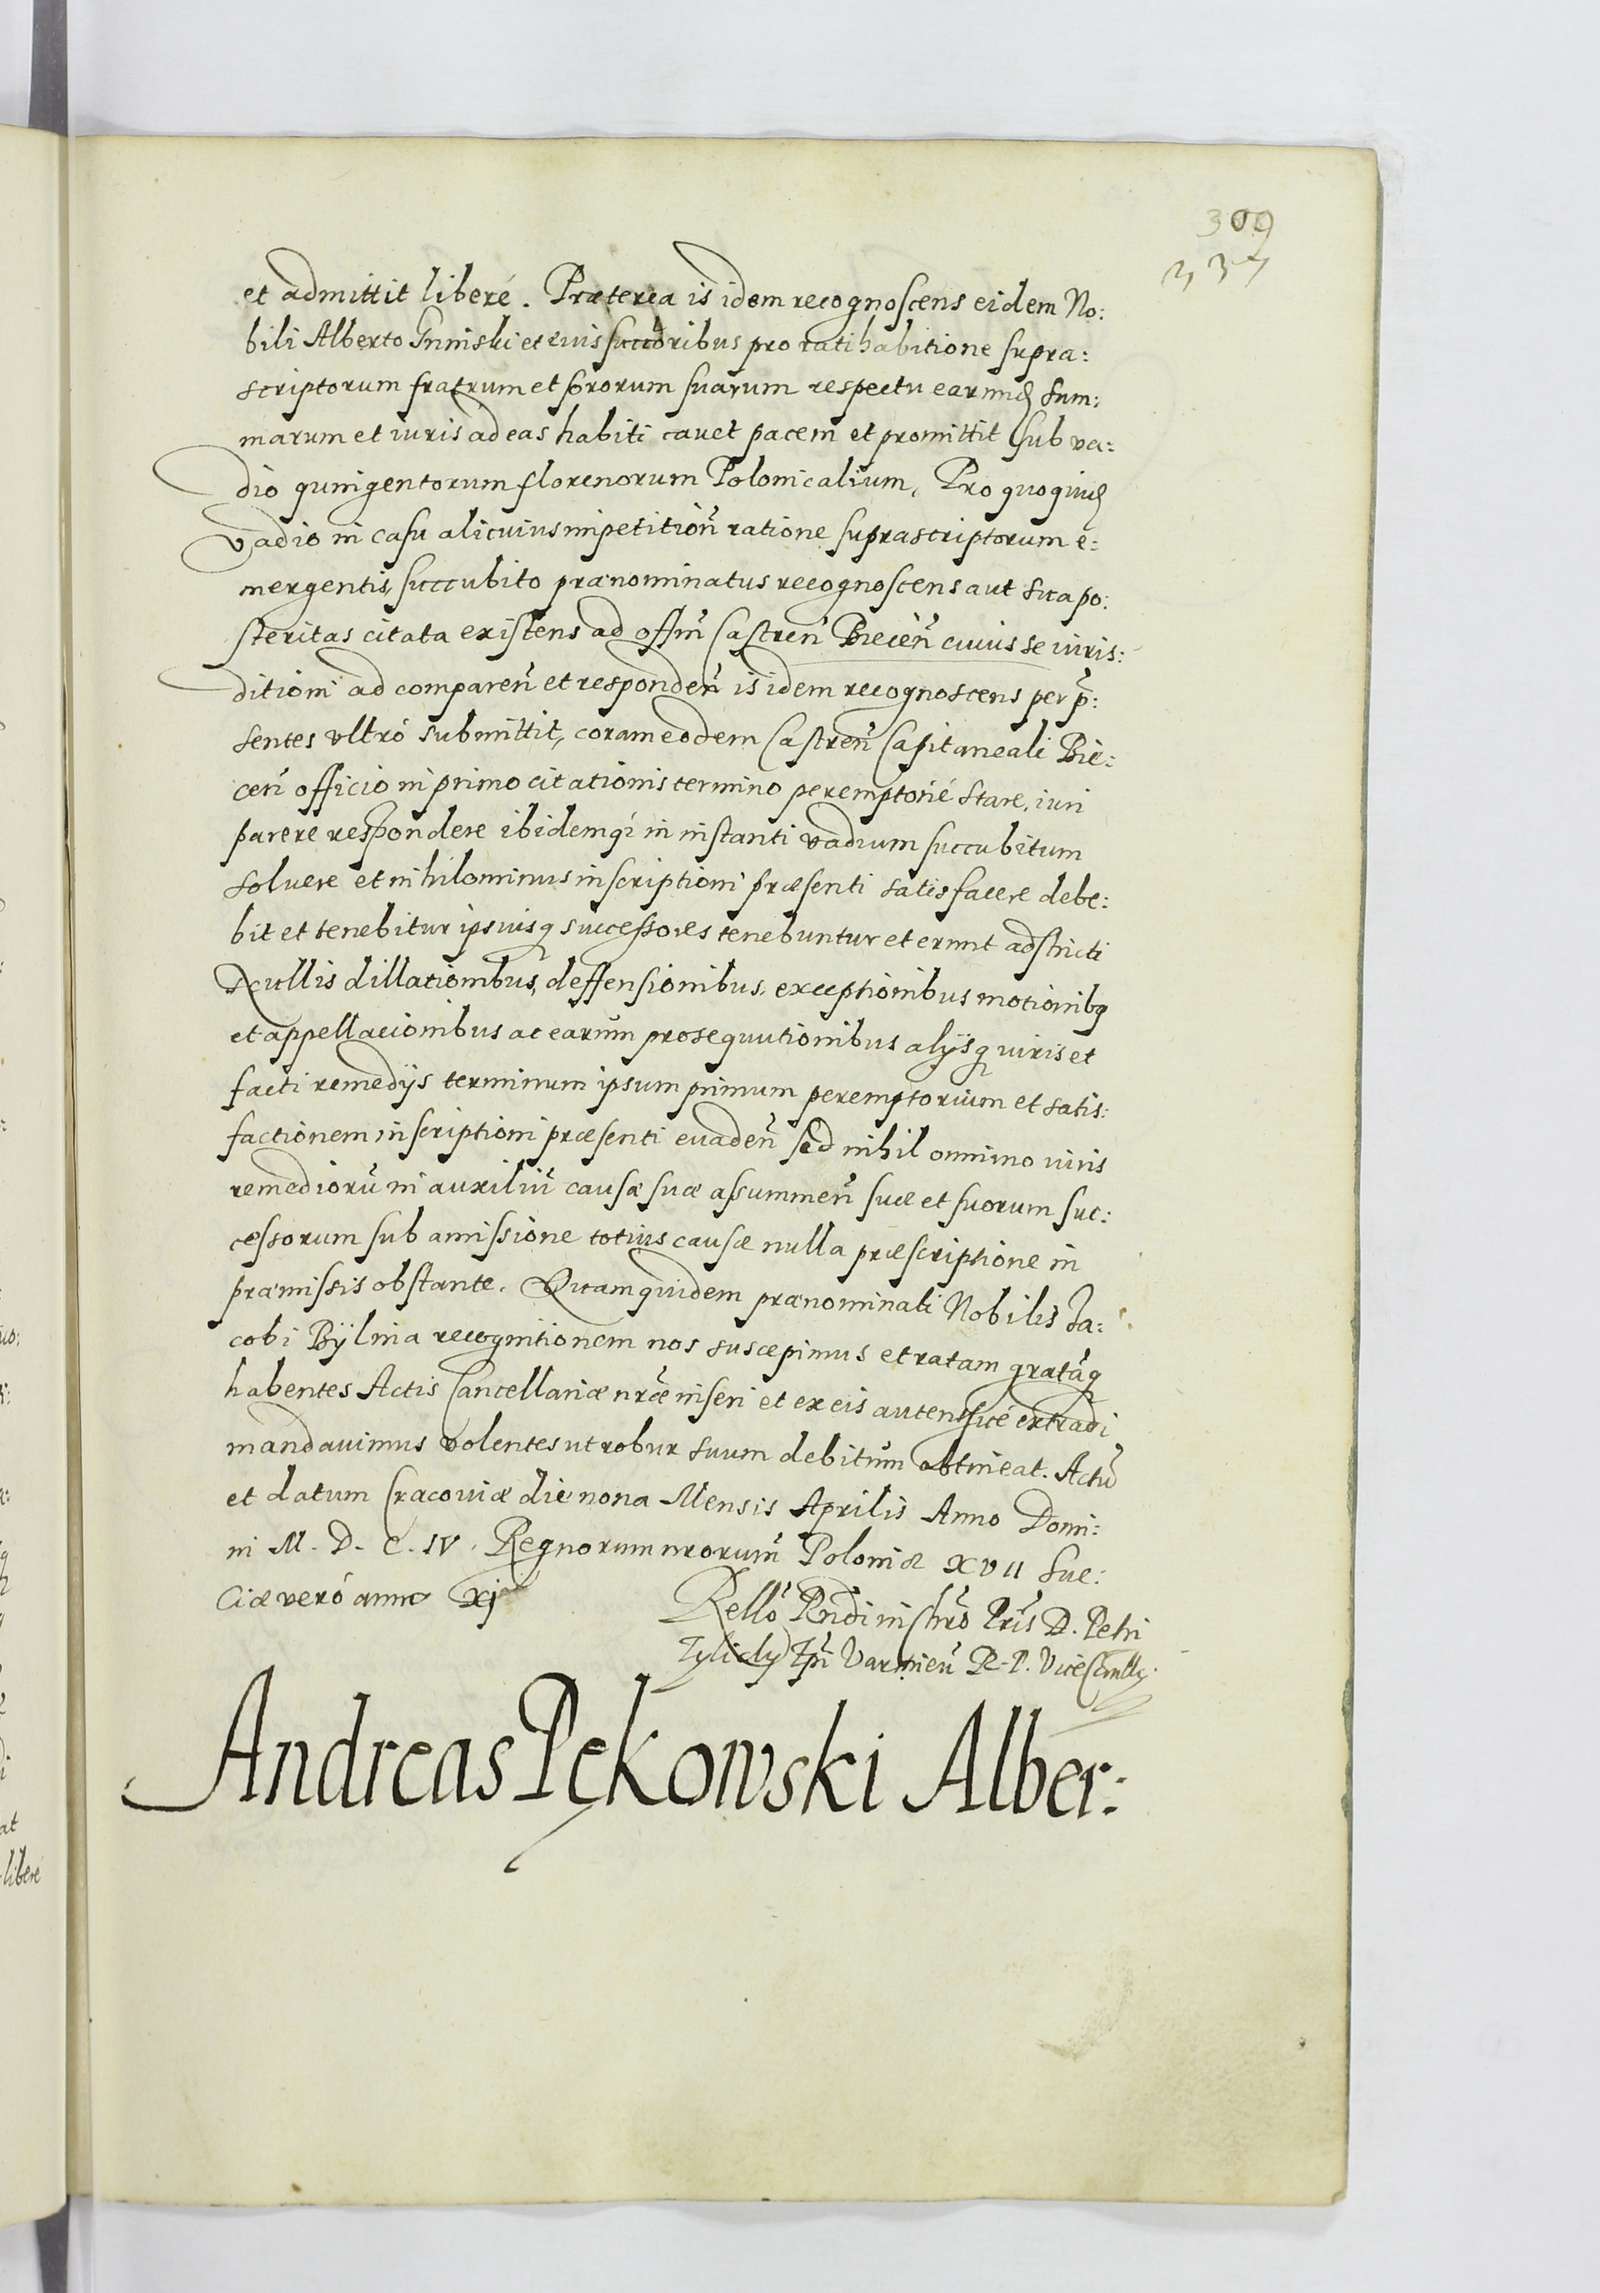 309
337
et admittit liberé. Præterea is idem recognoscens eidem No:
bili Alberto Gnniski et eius succoribus pro ratihabitione supra:
scriptorum fratrum et sororum suarum respectu earundem sum:
marum et iuris ad eas habiti cauet pacem et promittit sub va:
dio quingentorum florenorum Polonicalium, Pro quoquidem
vadio in casu alicuius impetitioñ ratione suprascriptorum e:
mergentis, succubito prænominatus recognoscens aut sua po:
steritas citata existens ad offm̃ Castreñ Bieceñ cuius se iuris:
ditioni ad compareñ et respondeñ is idem recognoscens per p̃:
sentes vltró submittit, coram eodem Castreñ Capitaneali Bie:
ceñ officio in primo citationis termino peremptorié stare, iuri
parere respondere ibidemq́ in instanti vadium succubitum
soluere et nihilominus inscriptioni præsenti satisfacere debe:
bit et tenebitur ipsiusq successores tenebuntur et erunt adstricti
Nullis dillationibus, deffensionibus, exceptionibus motionibq
et appellacionibus ac earum prosequutionibus alijsq iuris et
facti remedijs terminum ipsum primum peremptorium et satis:
factionem inscriptioni præsenti euadeñ sed nihil omnino iuris
remediorũ in auxiliũ causæ suæ assummeñ suæ et suorum suc:
cessorum sub amissione totius causæ nulla præscriptione in
præmissis obstante. Quamquidem prænominati Nobilis Ja:
cobi Bÿlina recognitionem nos suscepimus et ratam gratãq
habentes Actis Cancellariæ nr̃æ inseri et ex eis autenticé extradi
mandauimus volentes ut robur suum debitum obtineat. Actũ
et datum Cracouiæ die nona Mensis Aprilis Anno Domi:
ni M. D. C. IV. Regnorum nrorum̃ Poloniæ XVII Sue:
ciæ veró anno Xj
Rellõ Rndi in Chrõ Pris̃ D. Petri
Tylicky Ep̃i Varmieñ R. P. ViceCancelly.
Andreas Pękowski Alber: